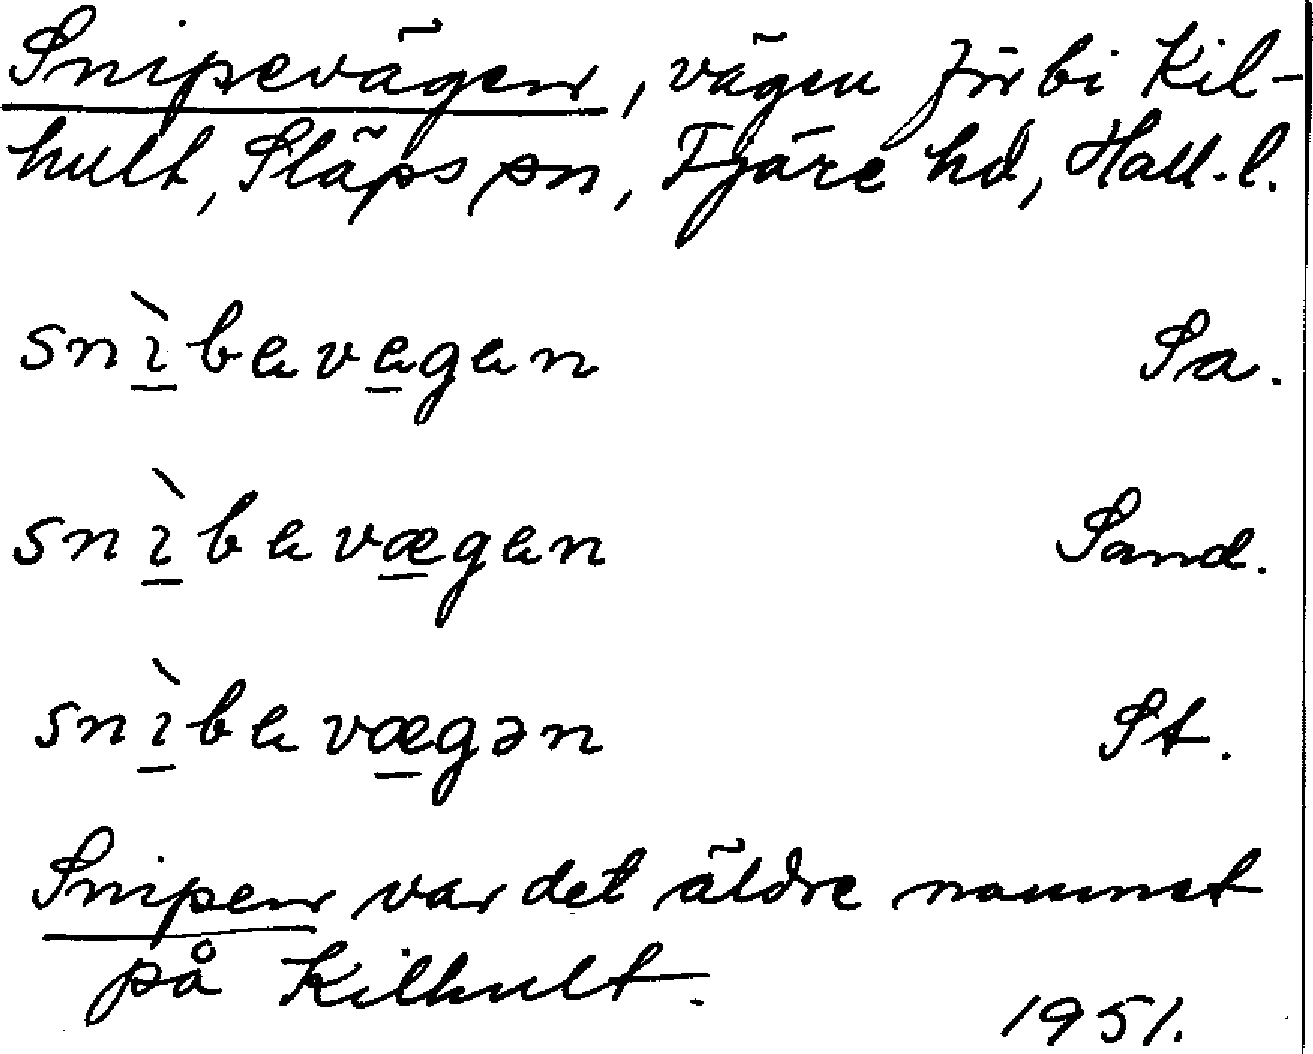 Snipevägen, vägen förbi Kil-
hult, Släps sn, Fjäre hd, Hall. l.
snı̀bevegen Sa.
snı̀bevægen Sand.
snı̀bevægən St.
Snipen var det äldre namnet
på Kilhult.
1951.